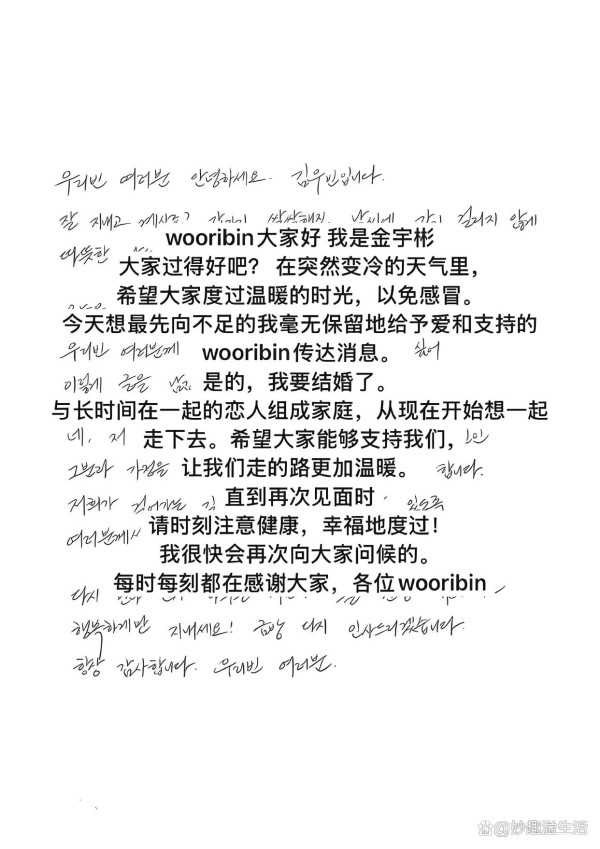 우리빈 여러분 안녕하세요. 김우빈입니다.
잘 지내고 계시죠? 갑자기 쌀쌀해진 날씨에 감기 걸리지 않게
따뜻한
wooribin大家好 我是金宇彬
大家过得好吧？ 在突然变冷的天气里，
希望大家度过温暖的时光，以免感冒。
今天想最先向不足的我毫无保留地给予爱和支持的
우리빈 여러분께
wooribin传达消息。
싶어
이렇게 글을
是的，我要结婚了。
与长时间在一起的恋人组成家庭，从现在开始想一起
네, 저
走下去。希望大家能够支持我们，
그분과 가정을
让我们走的路更加温暖。
합니다.
저희가 걸어가는 길
直到再次见面时
있도록
여러분께서
请时刻注意健康，幸福地度过！
我很快会再次向大家问候的。
每时每刻都在感谢大家，各位wooribin
다시
행복하게만 지내세요! 금방 다시 인사드리겠습니다.
항상 감사합니다. 우리빈 여러분.
@妙趣溢生活